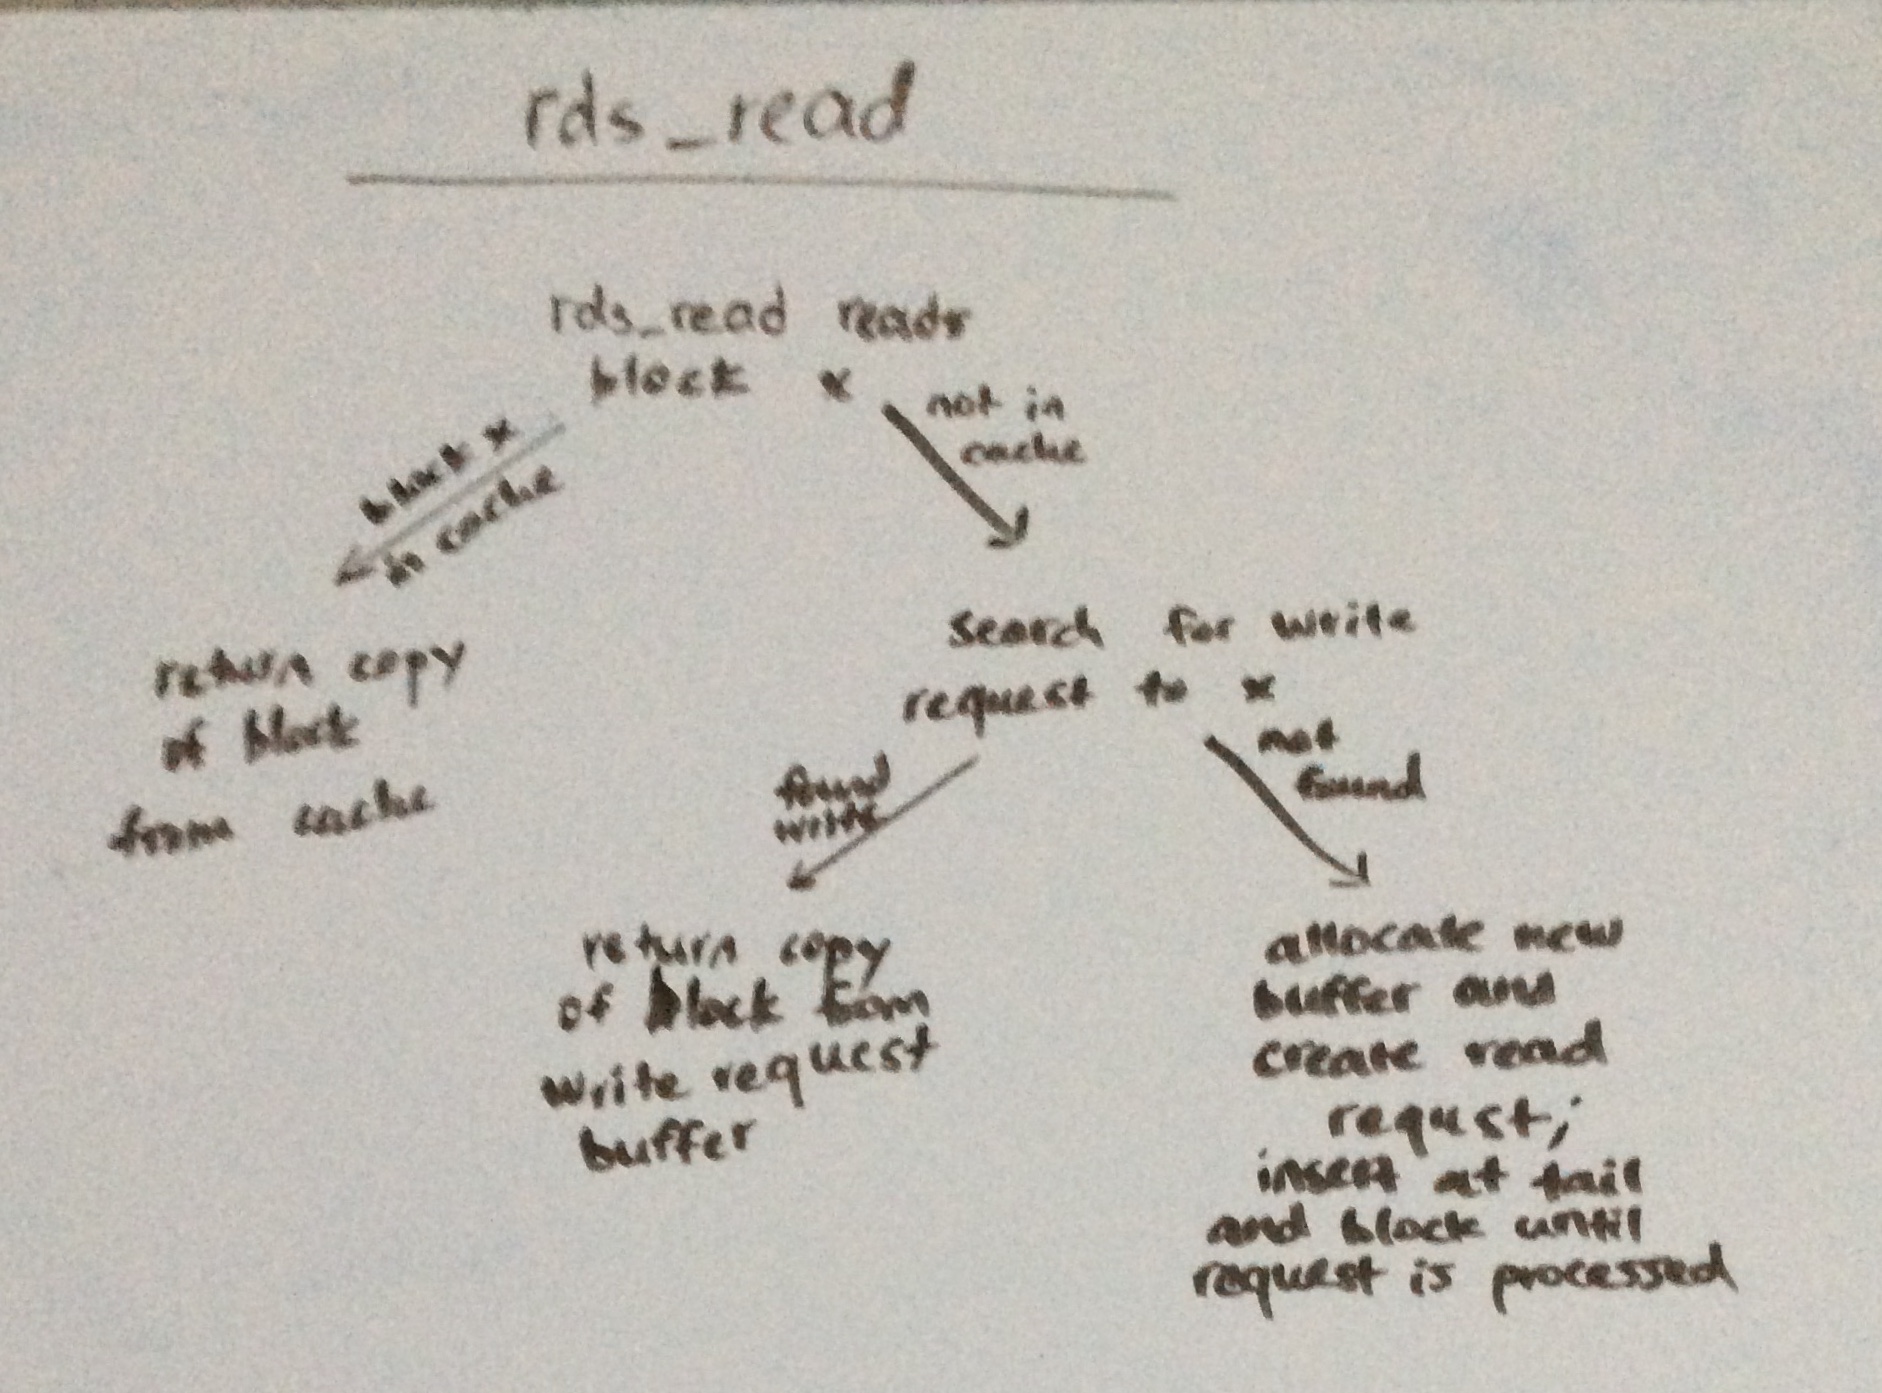 rds_read
rds_read reads
block x
block x
in cache
not in
cache
return copy
of block
from cache
search for write
request to x
found
write
not
found
return copy
of block from
write request
buffer
allocate new
buffer and
create read
requst;
insert at tail
and block until
request is processed